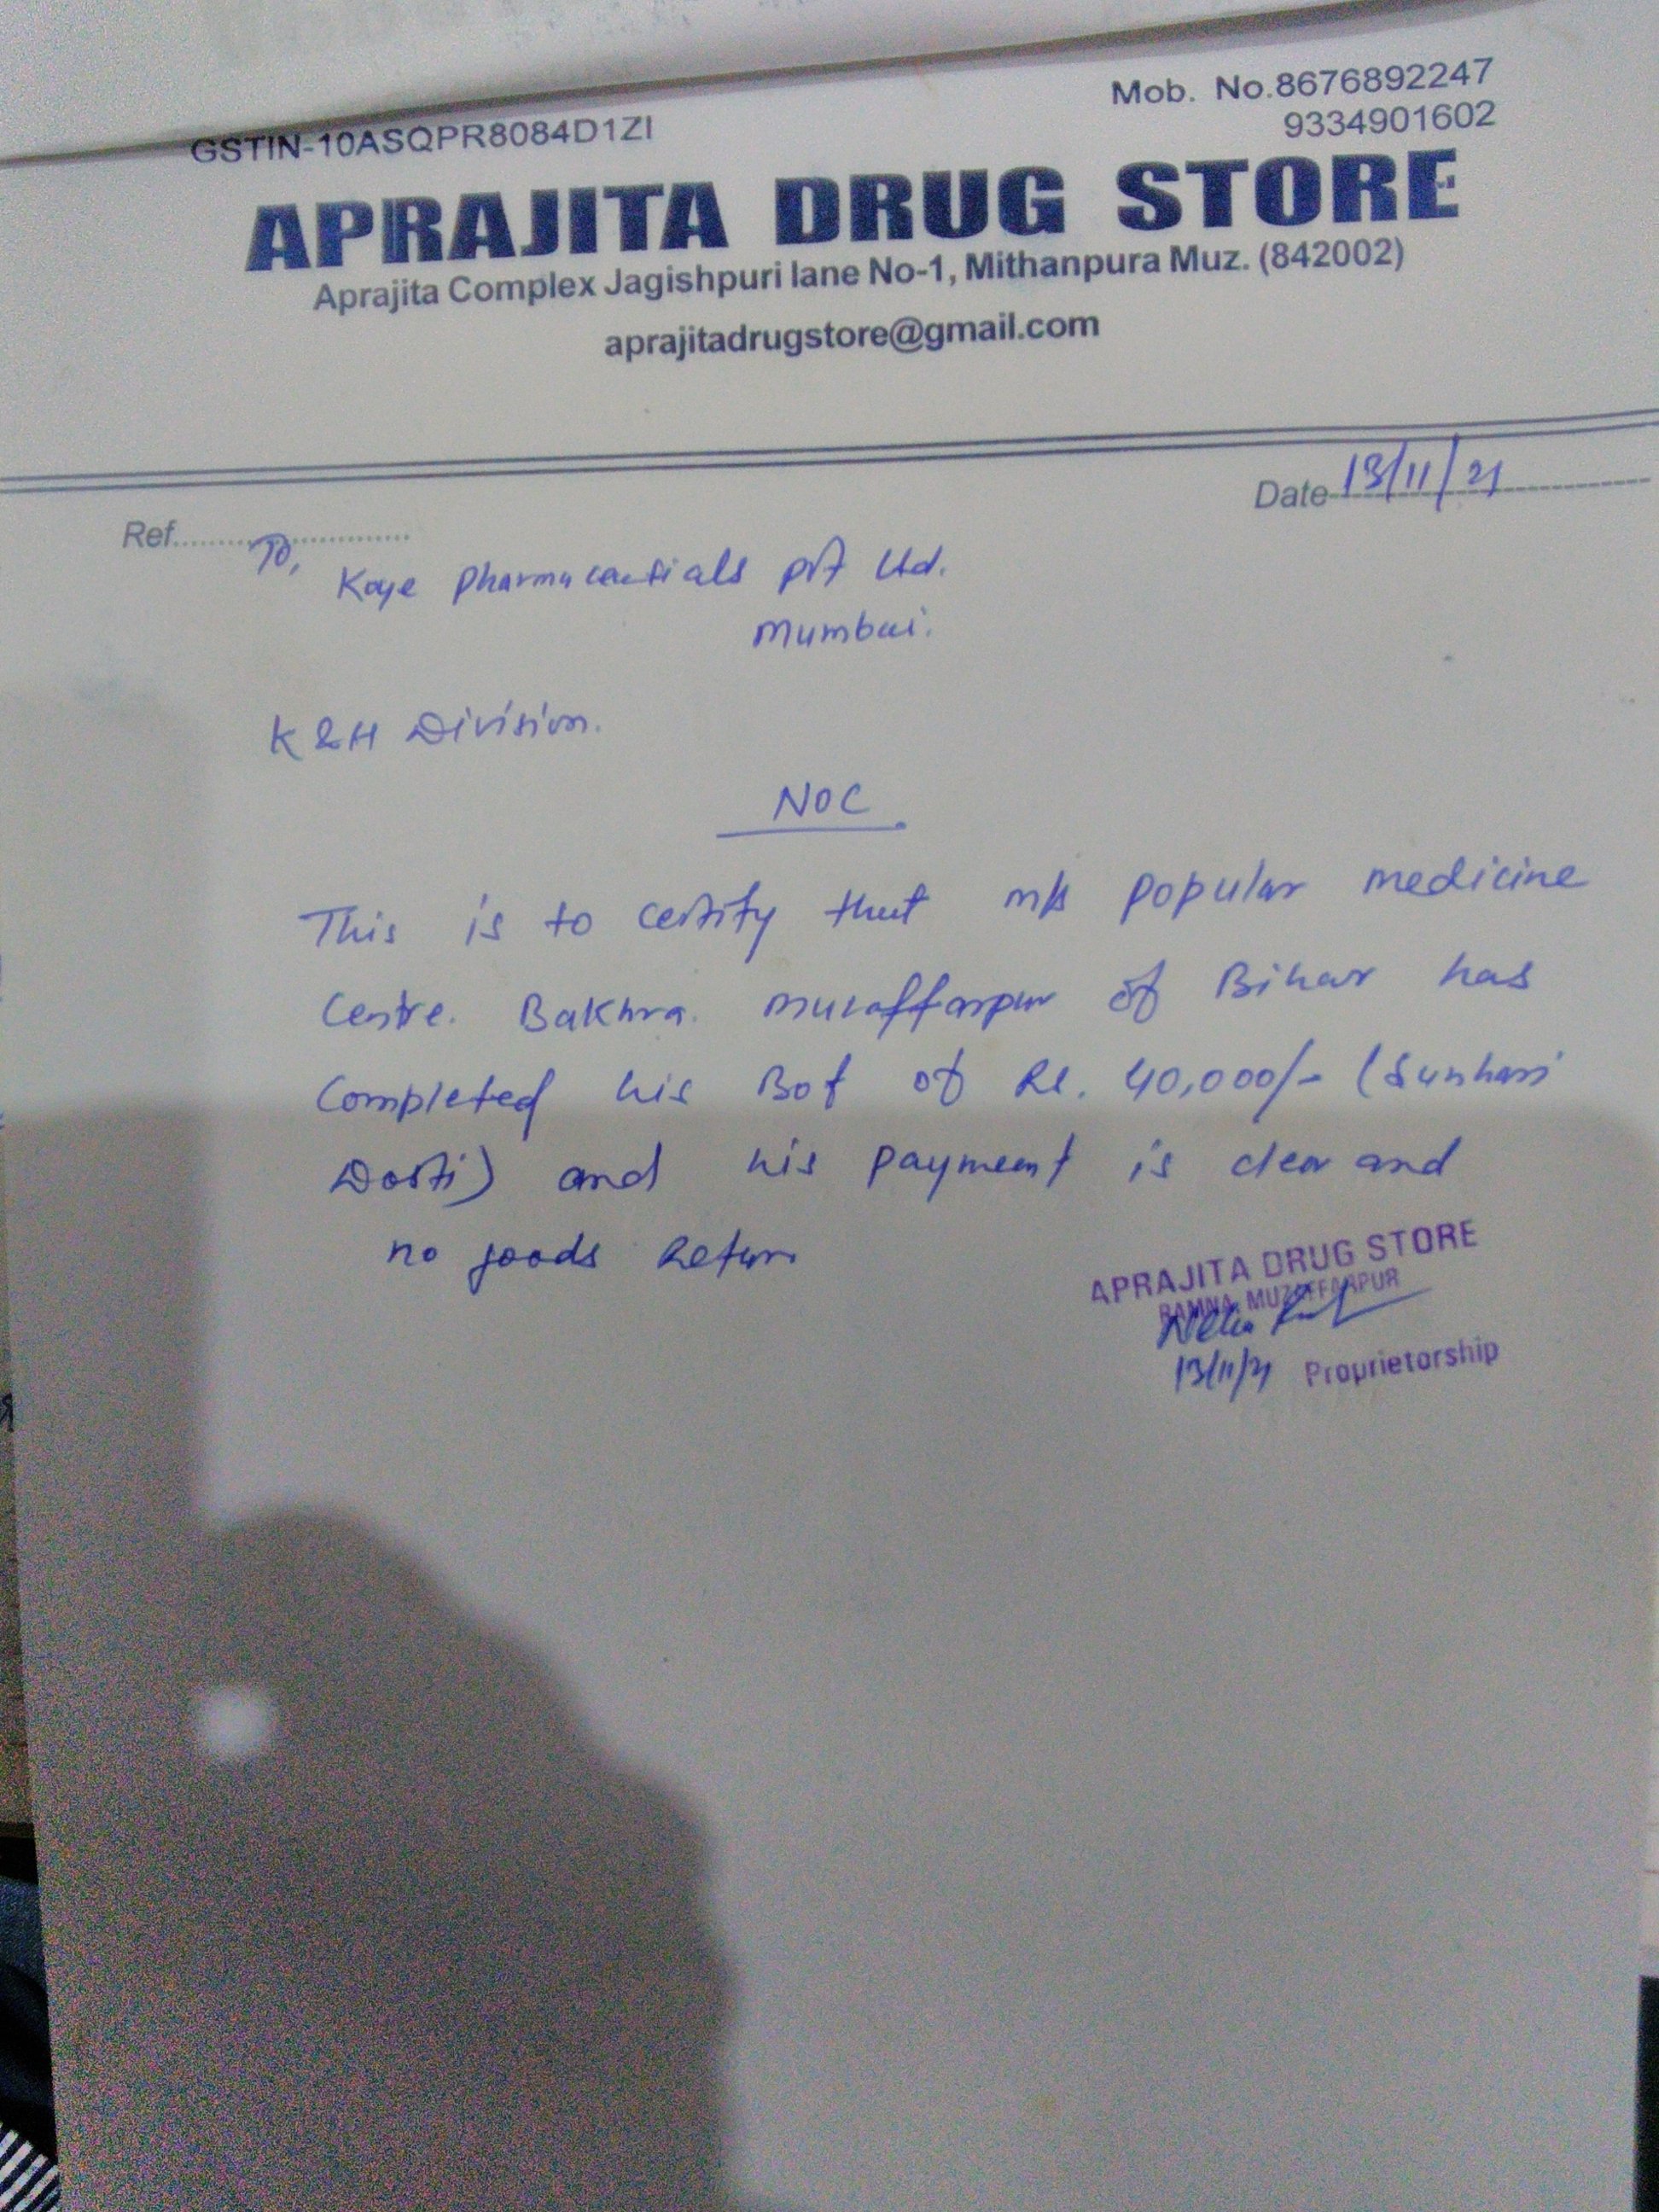 GSTIN-10ASQPR8084D1ZI
Mob. No.8676892247
9334901602
APRAJITA DRUG STORE
Aprajita Complex Jagishpuri lane No-1, Mithanpura Muz. (842002)
aprajitadrugstore@gmail.com
Date 13/11/21
Ref.
To,
Kaye Pharmaceutials pvt Ltd.
Mumbai.
K & H Division.
NOC
This is to certify that m/s popular medicine
Centre. Bakhra. muzaffarpur of Bihar has
Completed his Bof of Rs. 40,000/- (Sunhari
Dosti) and his payment is clear and
no goods Return
APRAJITA DRUG STORE
RAMNA, MUZAFFARPUR
13/11/21 Proprietorship